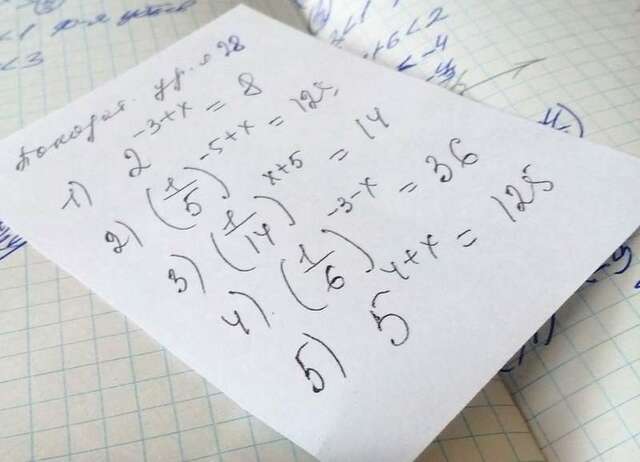 Показат. ур. с 28
1) 2^{-3+x} = 8
2) (1/5)^{-5+x} = 125
3) (1/14)^{x+5} = 14
4) (1/6)^{-3-x} = 36
5) 5^{4+x} = 125
<1
<3
<1
+6<2
<-4